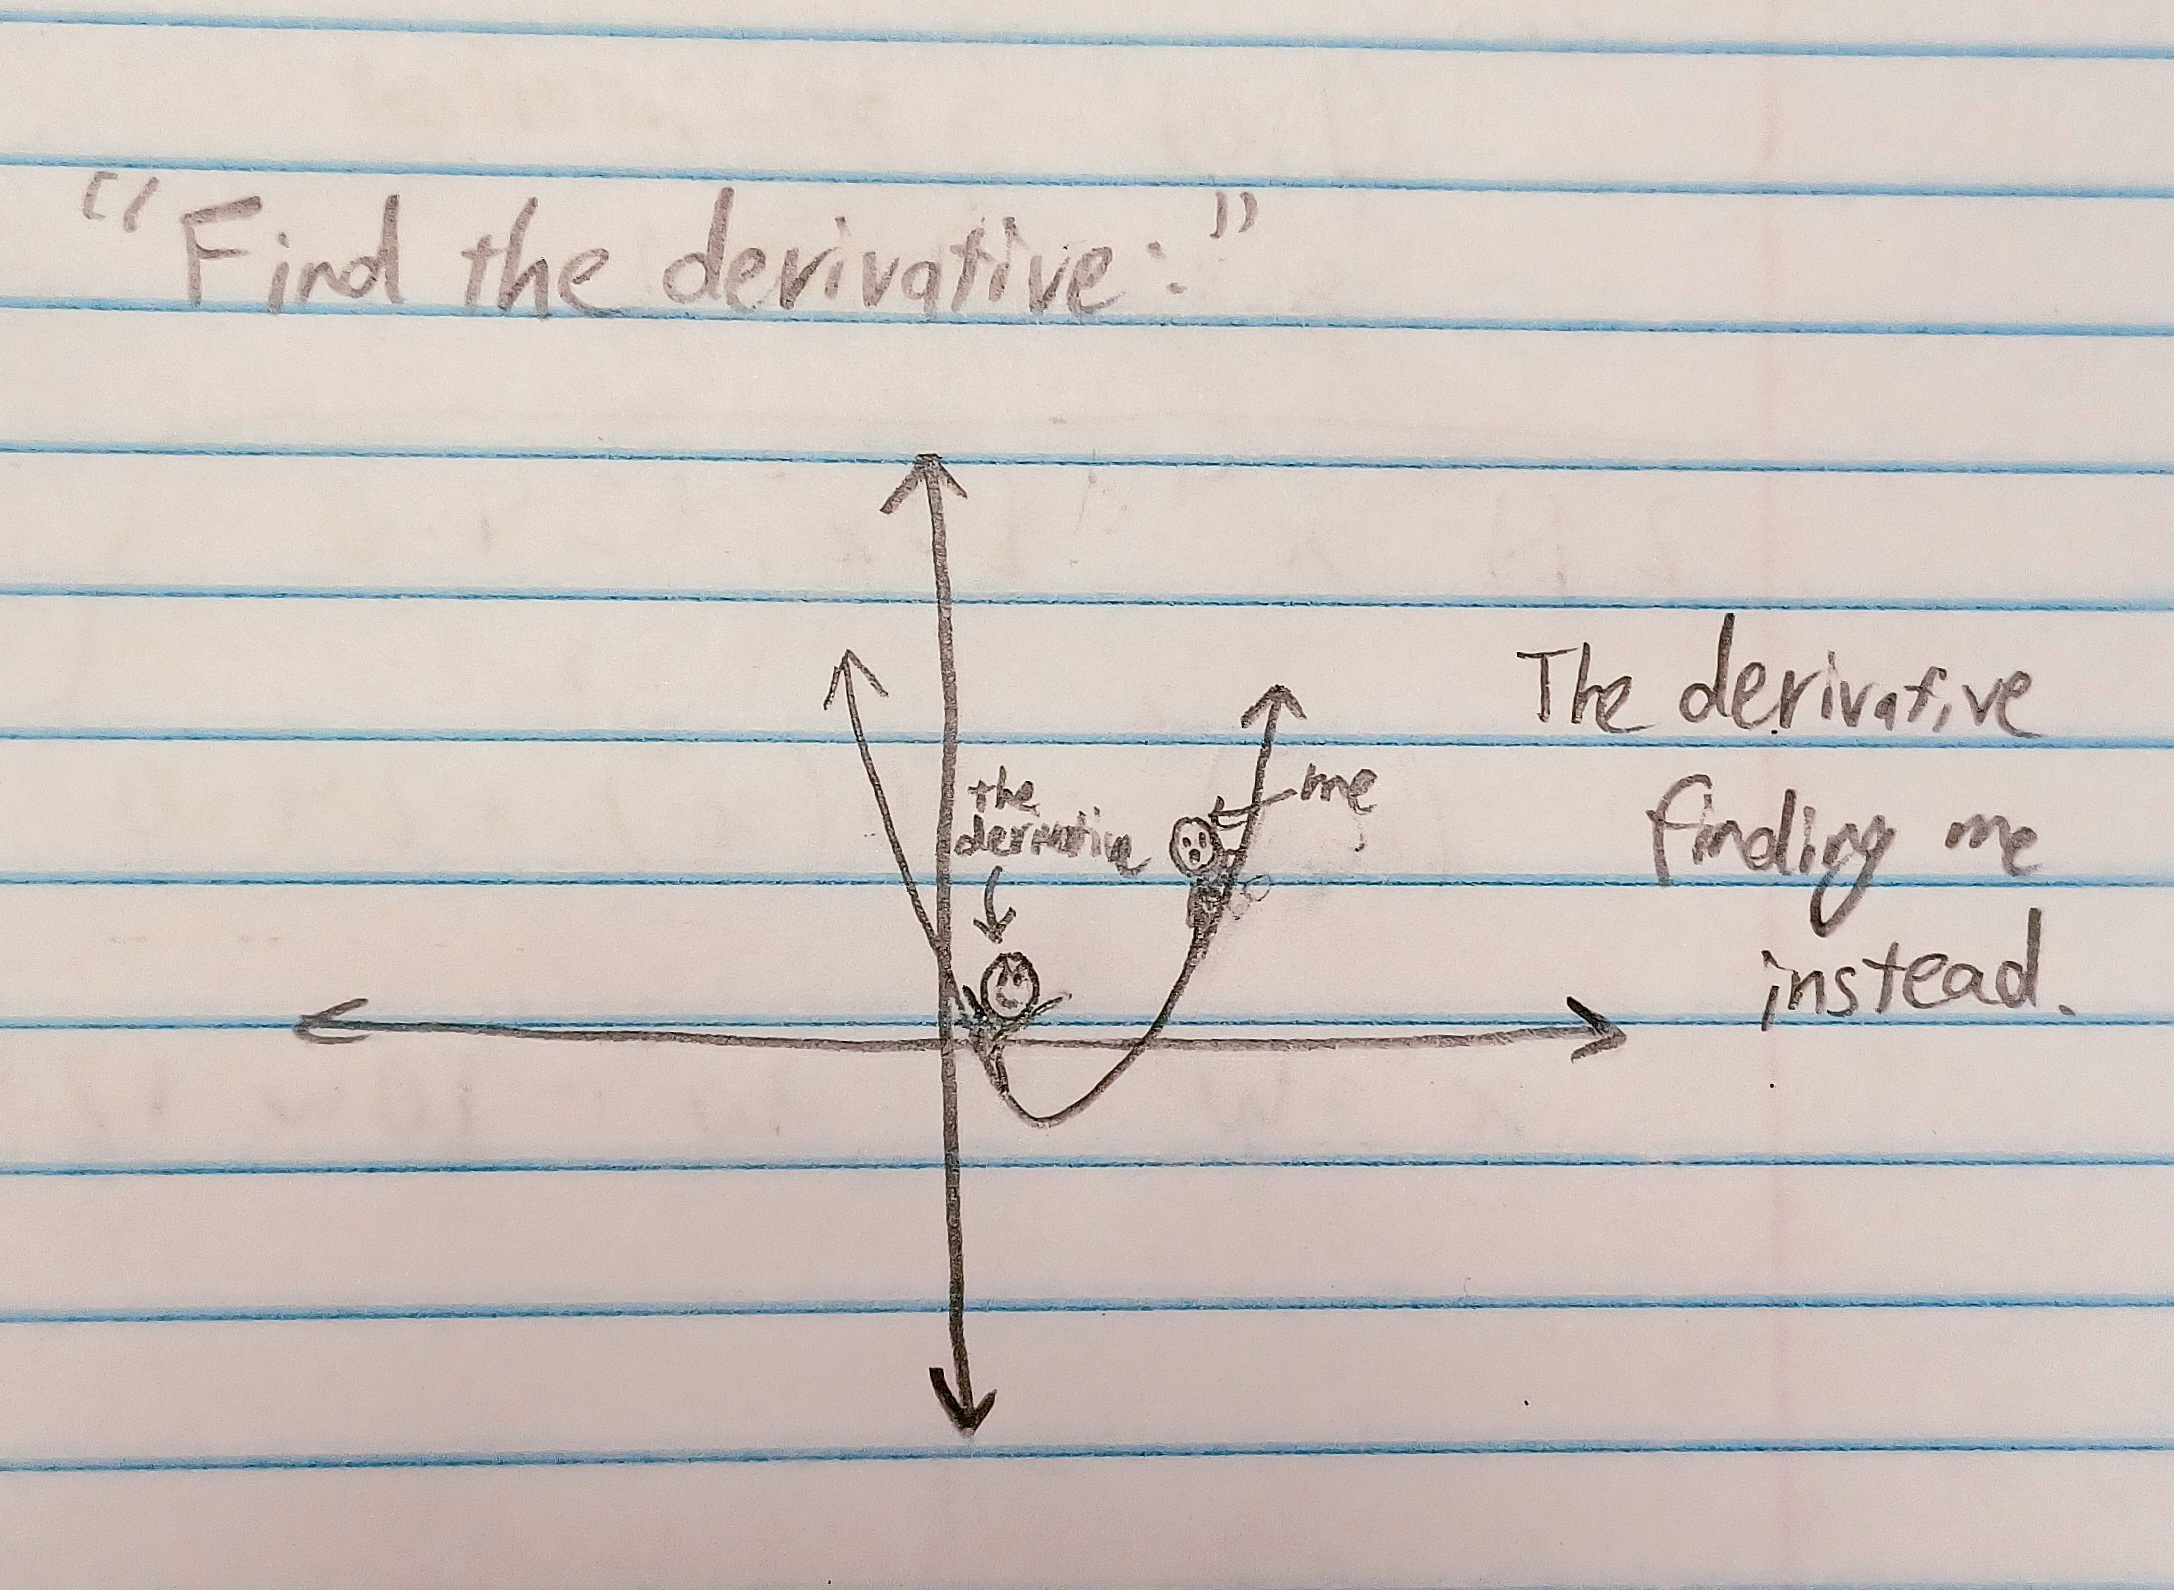 "Find the derivative:"
The derivative
finding me
instead.
the
derivative
me